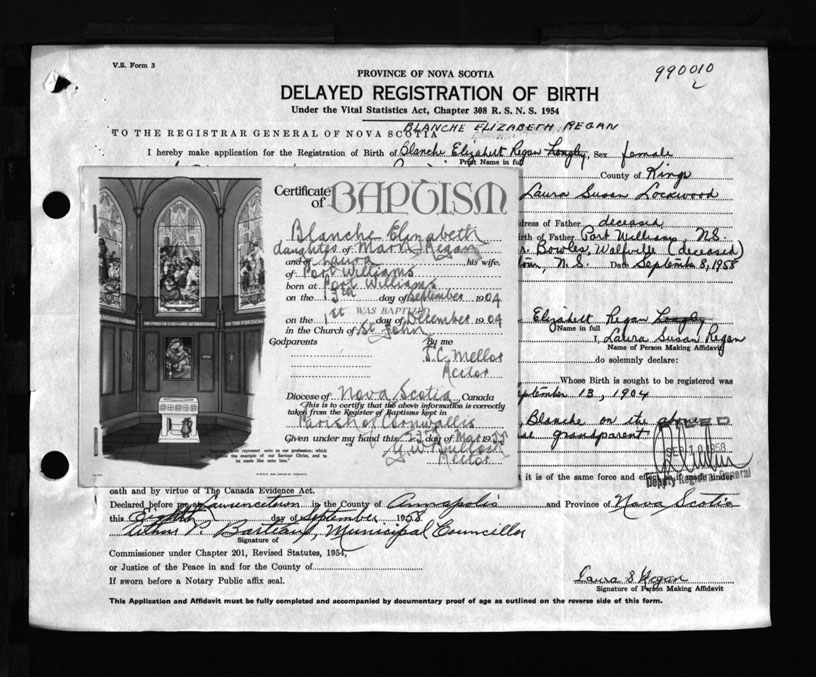 V.S. Form 3
990010
PROVINCE OF NOVA SCOTIA
DELAYED REGISTRATION OF BIRTH
Under the Vital Statistics Act, Chapter 308 R. S. N. S. 1954
BLANCHE ELIZABETH REGAN
TO THE REGISTRAR GENERAL OF NOVA SCOTIA
I hereby make application for the Registration of Birth of Blanche Elizabeth Regan Longley, Sex female
Print Name in full
County of Kings
Laura Susan Lockwood
dress of Father deceased
irth of Father Port Williams, N.S.
Bowles, Wolfville (deceased)
N. S. Date September 8, 1958
Elizabeth Regan Longley
Name in full
I, Laura Susan Regan
Name of Person Making Affidavit
do solemnly declare:
Whose Birth is sought to be registered was
September 13, 1904
Blanche on the above
grandparent
Deputy Registrar General
t it is of the same force and effect as if made under
Certificate of BAPTISM
Blanche Elizabeth
daughter of Martin Regan
and of Laura his wife.
of Port Williams
born at Port Williams
on the 3rd day of September 1904
WAS BAPTIZED
on the 1st day of December 1904
in the Church of St. John
Godparents By me
T.C. Mellor
Rector
Diocese of Nova Scotia, Canada
This is to certify that the above information is correctly
taken from the Register of Baptisms kept in
Parish of Cornwallis
Given under my hand this day of May 1955
Rector
represent unto us our profession, which
the example of our Saviour Christ, and to
be made like unto him.
oath and by virtue of The Canada Evidence Act.
Declared before me Lawrencetown in the County of Annapolis and Province of Nova Scotia
this Eighth day of September 1958
Arthur P. Barteaux, Municipal Councillor
Signature of
Commissioner under Chapter 201, Revised Statutes, 1954,
or Justice of the Peace in and for the County of
If sworn before a Notary Public affix seal.
Laura S Regan
Signature of Person Making Affidavit
This Application and Affidavit must be fully completed and accompanied by documentary proof of age as outlined on the reverse side of this form.